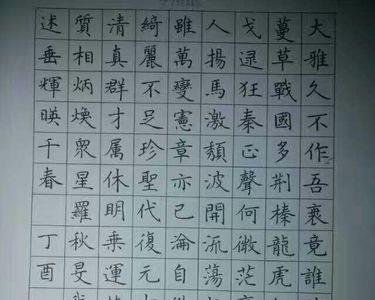 大雅久不作吾衰竟誰
蔓草戰國多荊榛龍虎
戈逮狂秦正聲何微茫
人揚馬激頹波開流蕩
雖萬變憲章亦已淪自
綺麗不足珍聖代復元
清真群才属休明乘運
質相炳煥眾星羅秋旻
述垂輝暎千春 丁酉